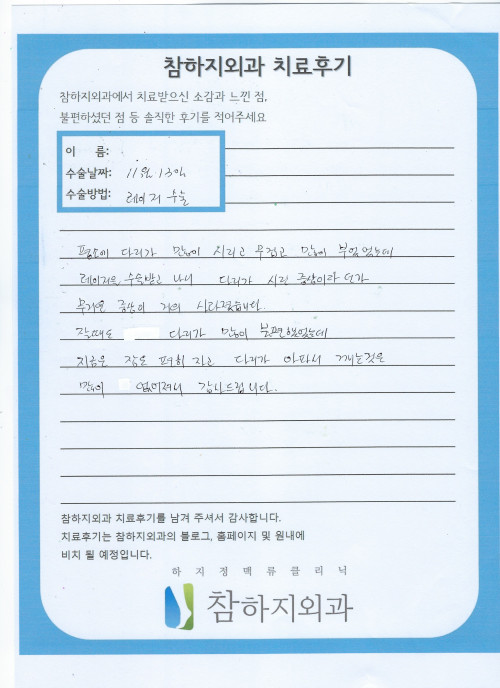 참하지외과 치료후기
참하지외과에서 치료받으신 소감과 느낀 점,
불편하셨던 점 등 솔직한 후기를 적어주세요
이 름:
수술날짜: 11월 13일
수술방법: 레이저 수술
평소에 다리가 많이 시리고 무겁고 많이 부었었는데
레이저로 수술받고 나니 다리가 시린 증상이라던가
무거운 증상이 거의 사라졌습니다.
잘때도 다리가 많이 불편했었는데
지금은 잠도 편히 자고 다리가 아파서 깨는것은
많이 없어져서 감사드립니다.
참하지외과 치료후기를 남겨 주셔서 감사합니다.
치료후기는 참하지외과의 블로그, 홈페이지 및 원내에
비치 될 예정입니다.
하지정맥류클리닉
참하지외과